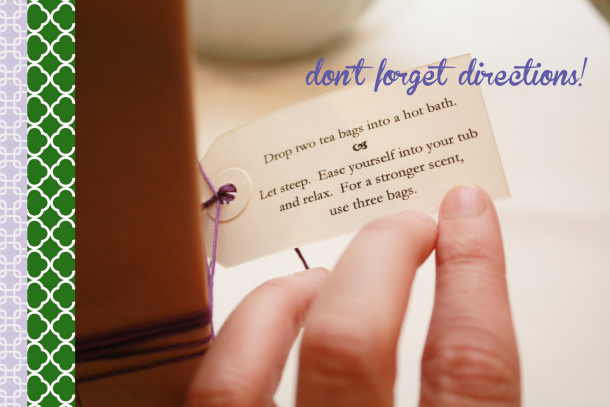 don't forget directions!
Drop two tea bags into a hot bath.
Let steep. Ease yourself into your tub
and relax. For a stronger scent,
use three bags.